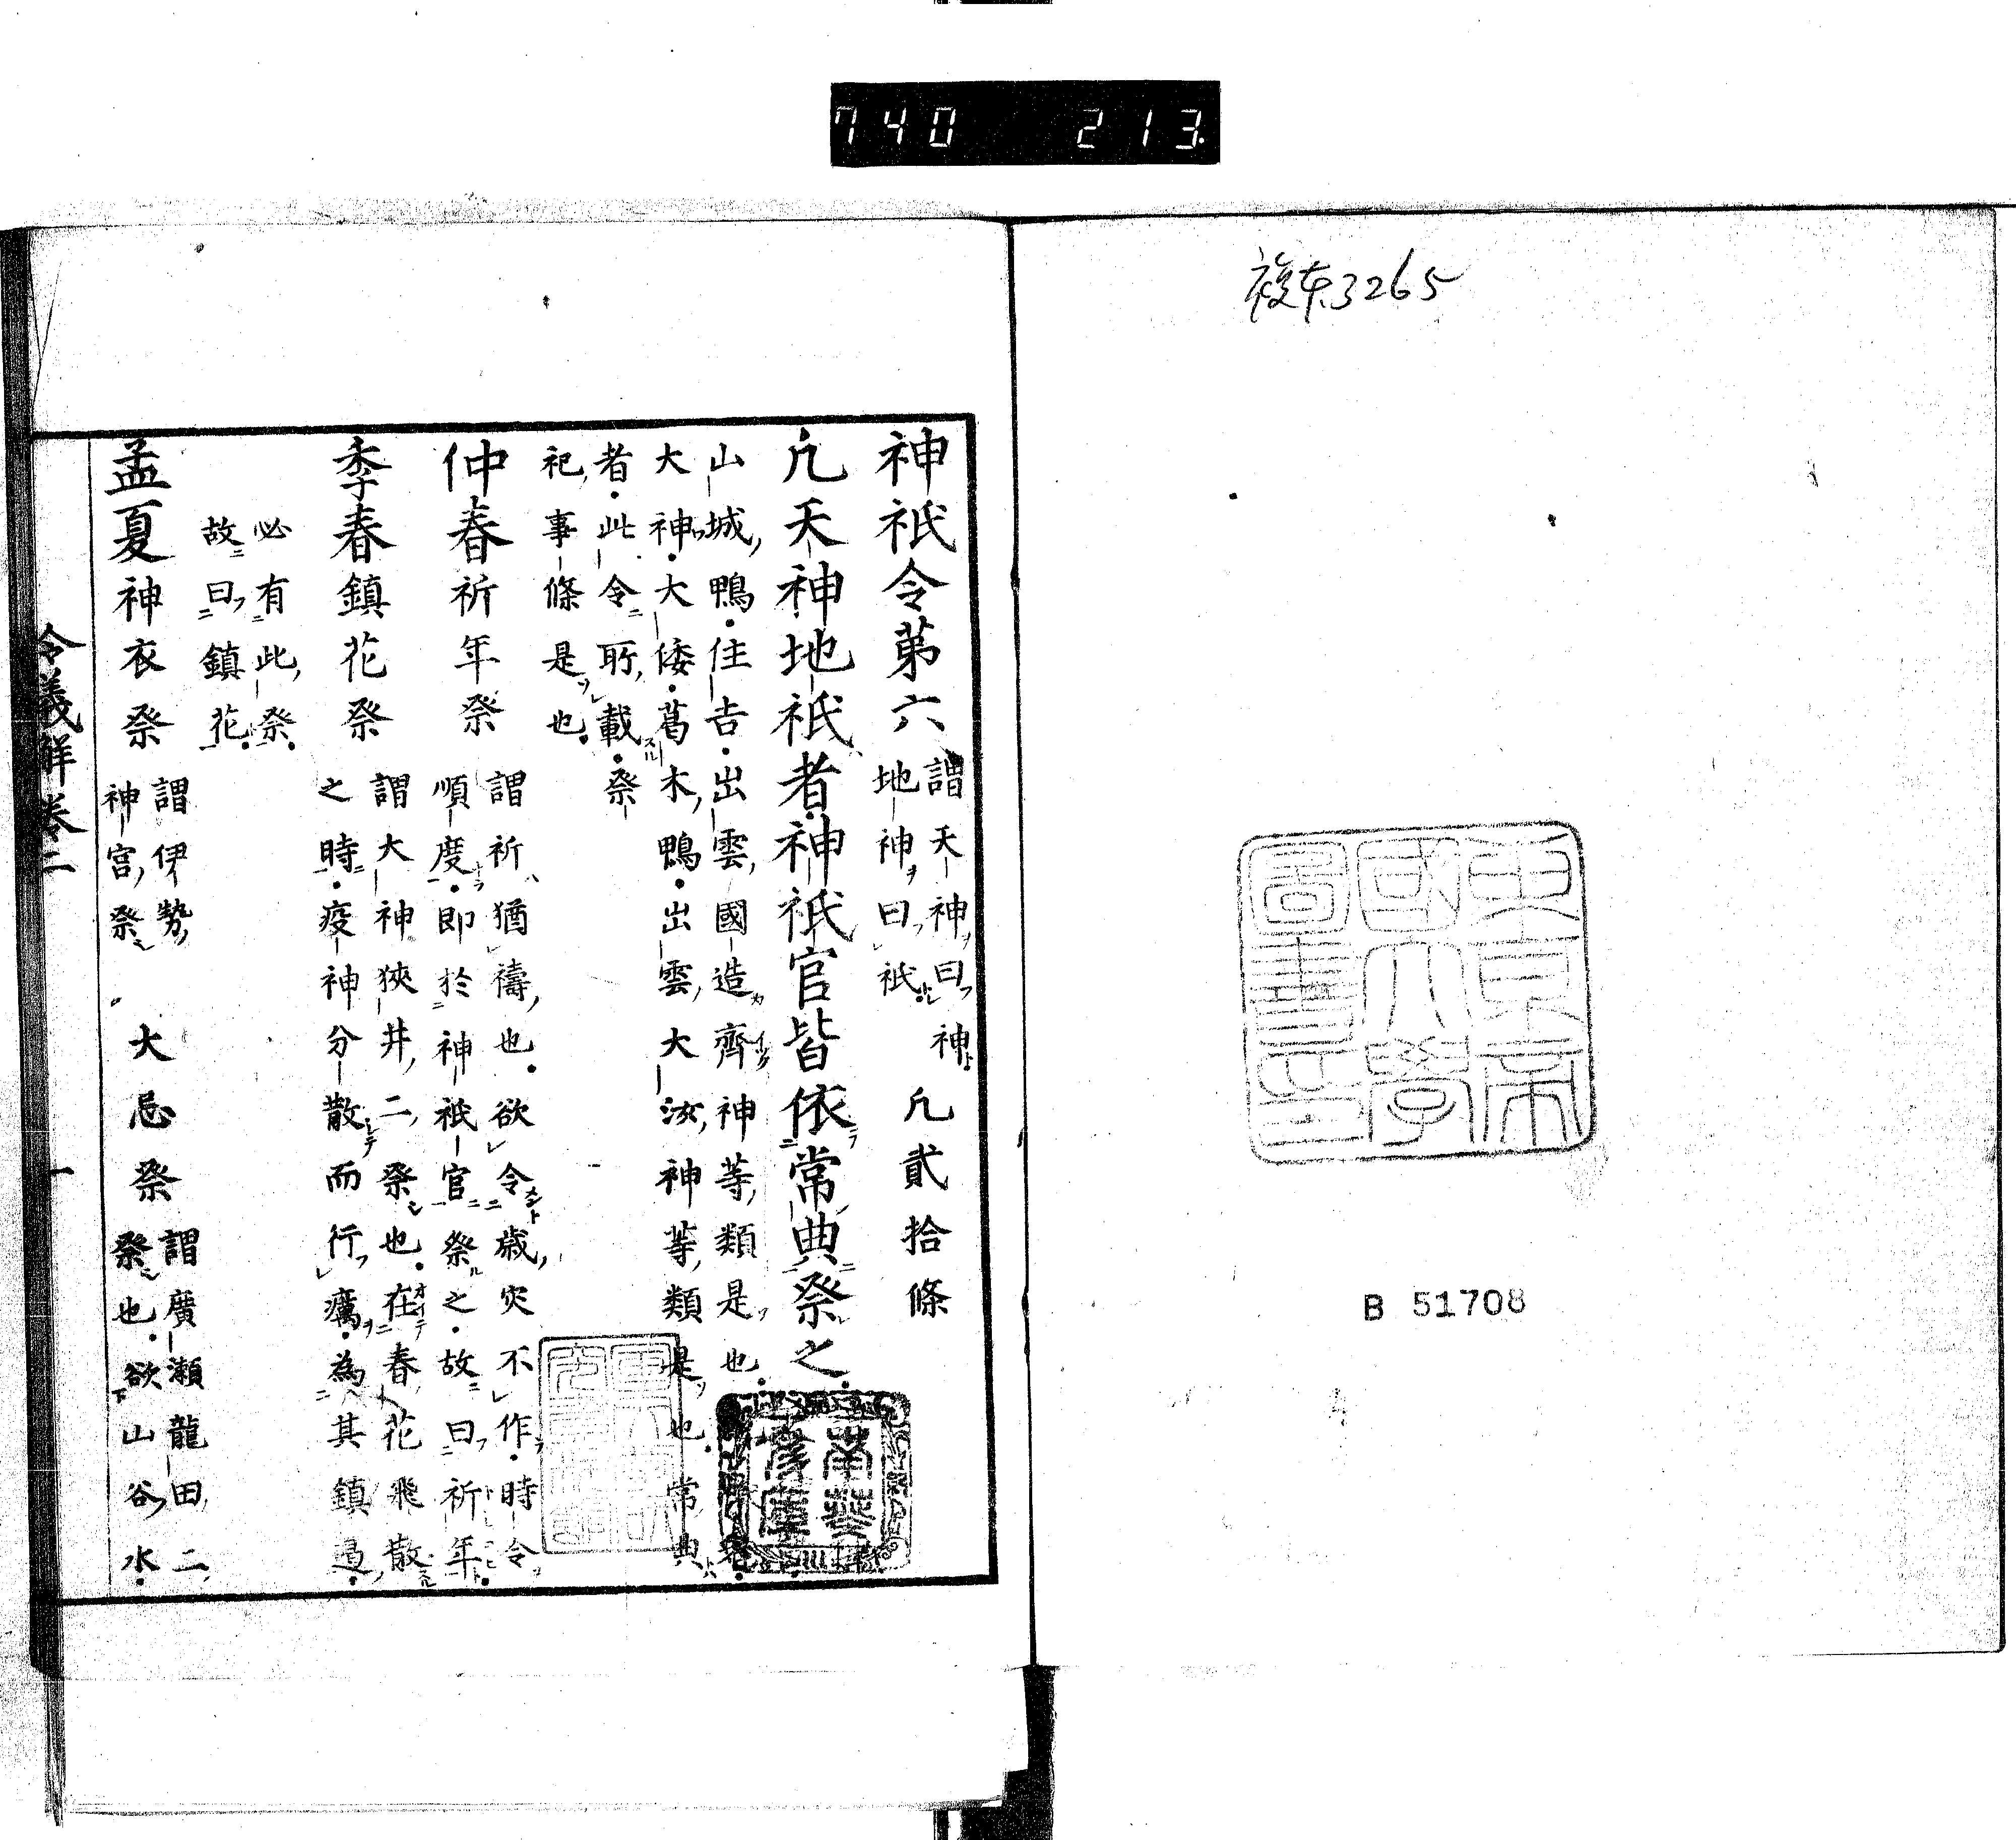 740 213
複本3265
東京帝
國大學
圖書印
B 51708
神祇令第六 謂天神曰神
地神曰祇 凡貳拾條
凡天神地祇者神祇官皆依常典祭之
山城鴨住吉出雲國造齊神等類是也
大神大倭葛木鴨出雲大汝神等類是也常典
者此令所載祭
祀事條是也
仲春祈年祭 謂祈猶禱也欲令歲灾不作時令
順度即於神祇官祭之故曰祈年
季春鎮花祭 謂大神狹井二祭也在春花飛散
之時疫神分散而行癘為其鎮遏
必有此祭
故曰鎮花
孟夏神衣祭 謂伊勢
神宮祭 大忌祭 謂廣瀬龍田二
祭也欲山谷水
令義解卷二 一
南葵
文庫